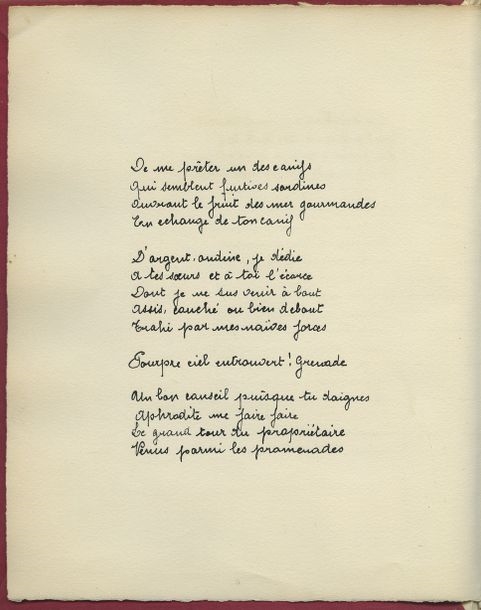 De me prêter un des canifs
Qui semblent furtives sardines
Ouvrant le fruit des mer gourmandes
En echange de ton canif
D'argent, ondine, je dédie
A tes sœurs et à toi l'écorce
Dont je ne sus venir à bout
Assis, couché ou bien debout
Trahi par mes naïves forces
Pourpre ciel entrouvert! Grenade
Un bon conseil puisque tu daignes
Aphrodite me faire faire
Le grand tour du propriétaire
Vénus parmi les promenades